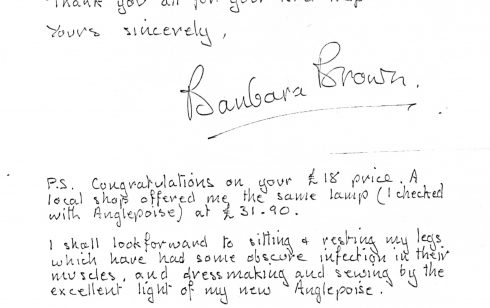 Thank you all for your kind help
Yours sincerely,
Barbara Brown.
P.S. Congratulations on your £18 price. A
local shop offered me the same lamp (I checked
with Anglepoise) at £31-90.
I shall lookforward to sitting & resting my legs
which have had some obscure infection in their
muscles, and dressmaking and sewing by the
excellent light of my new Anglepoise.